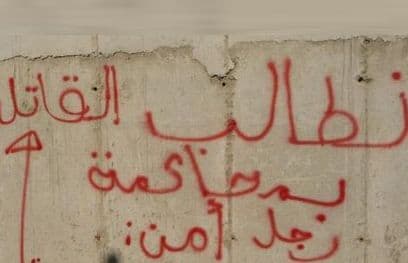 نطالب
بمحاكمة
رجل أمن:
القاتل